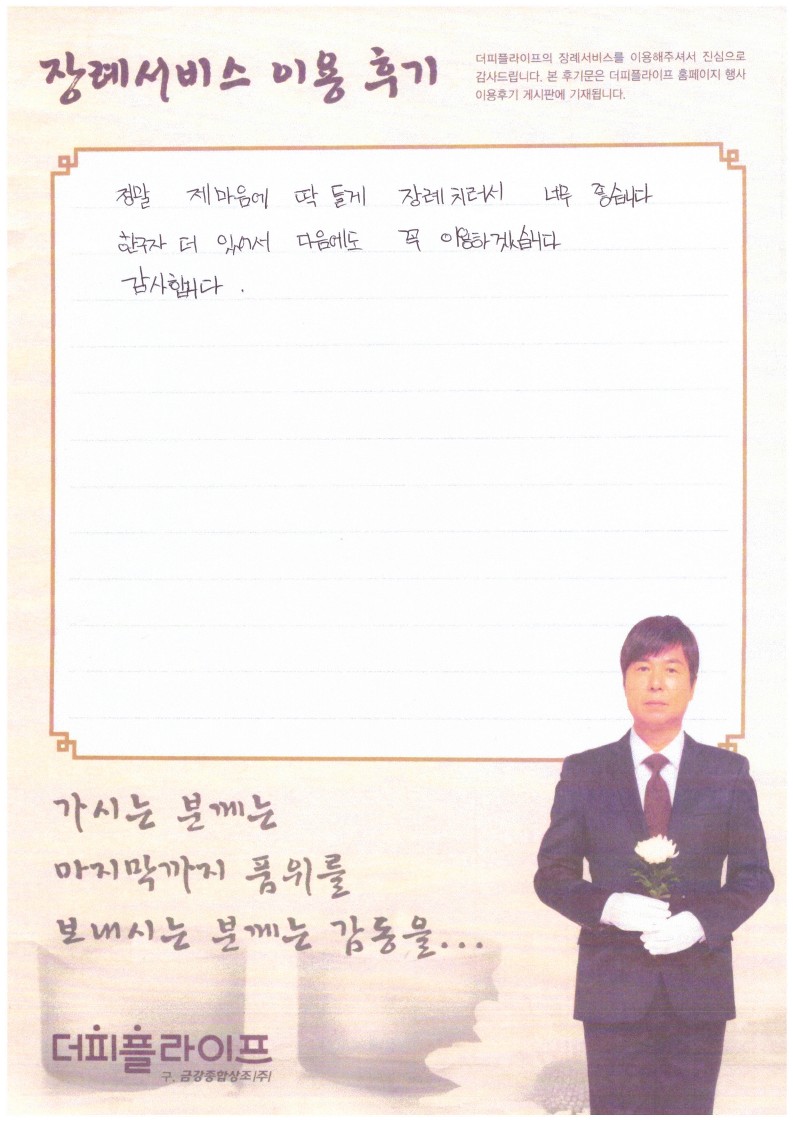 장례서비스 이용 후기
더피플라이프의 장례서비스를 이용해주셔서 진심으로
감사드립니다. 본 후기문은 더피플라이프 홈페이지 행사
이용후기 게시판에 기재됩니다.
정말 제 마음에 딱 들게 장례 치러서 너무 좋습니다
한구자 더 있어서 다음에도 꼭 이용하겠습니다
감사합니다.
가시는 분께는
마지막까지 품위를
보내시는 분께는 감동을...
더피플라이프
구. 금강종합상조(주)